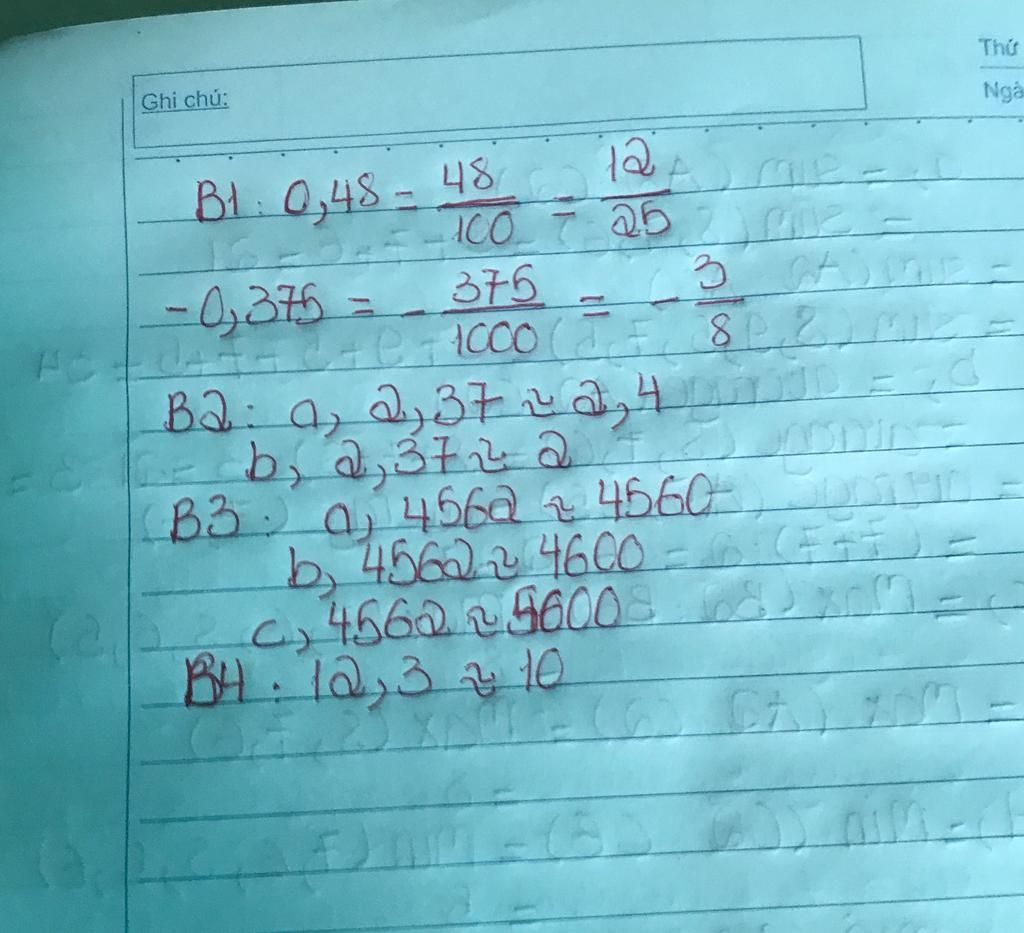 Thứ
Ngà
Ghi chú:
B1: 0,48 = 48/100 = 12/25
-0,375 = - 375/1000 = - 3/8
B2: a, 2,37 ≈ 2,4
b, 2,37 ≈ 2
B3: a, 4562 ≈ 4560
b, 4562 ≈ 4600
c, 4562 ≈ 5600
B4: 12,3 ≈ 10